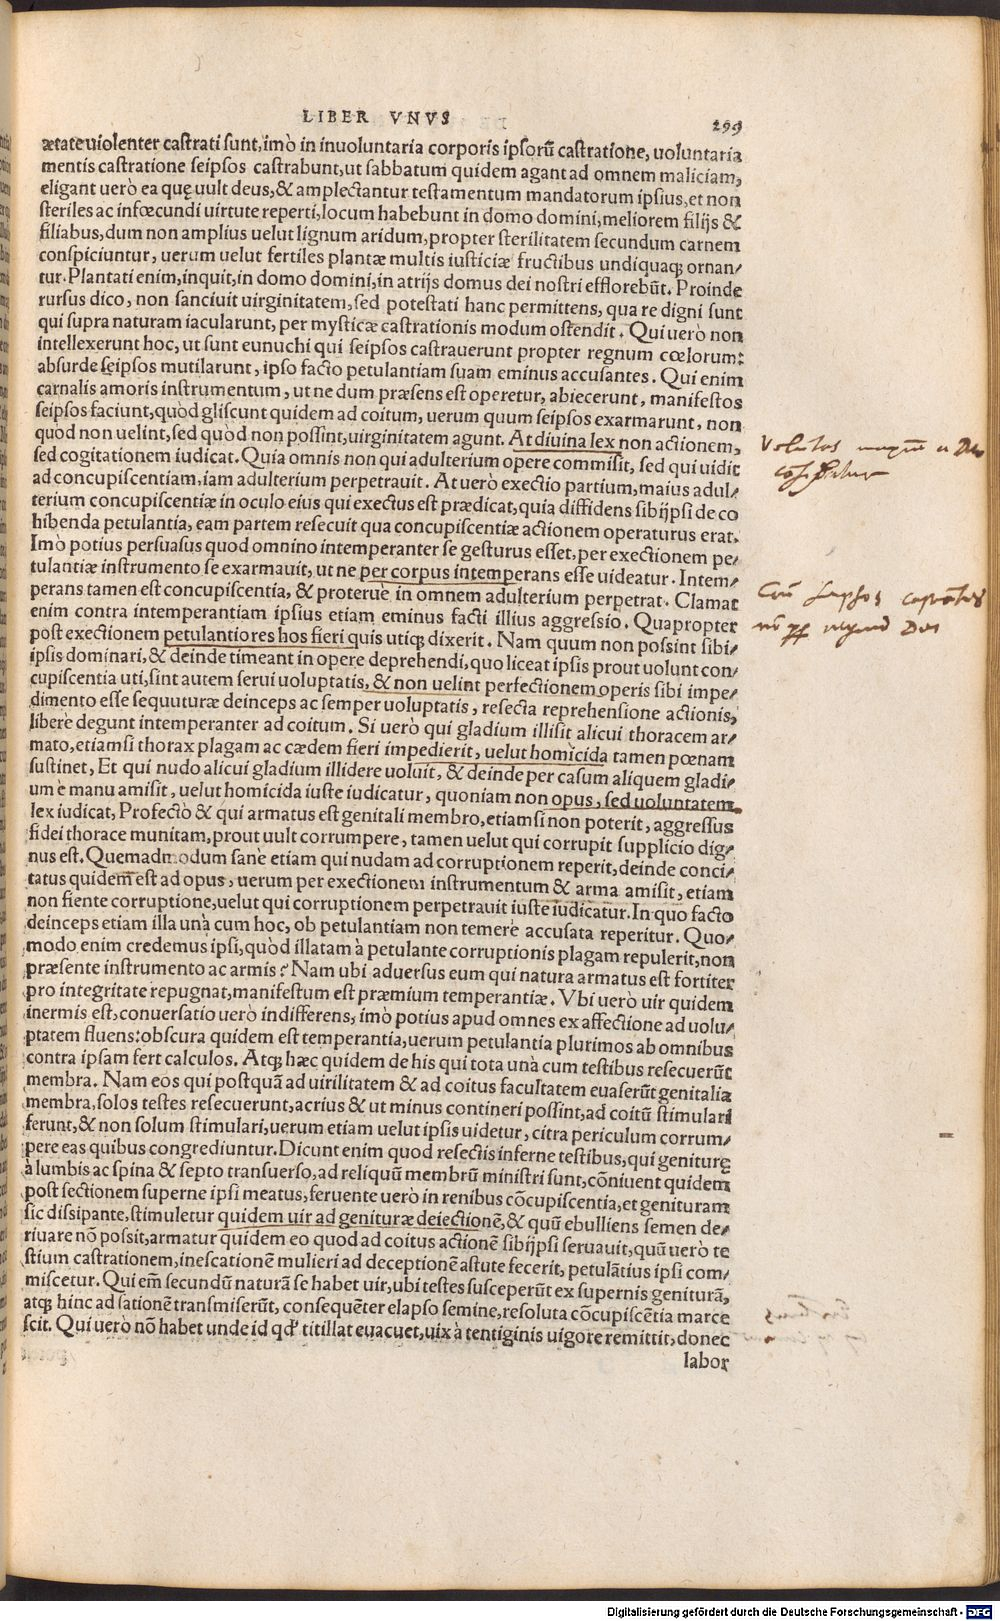 LIBER VNVS
299
ætate uiolenter castrati sunt, imò in inuoluntaria corporis ipsorũ castratione, uoluntaria
mentis castratione seipsos castrabunt, ut sabbatum quidem agant ad omnem maliciam,
eligant uerò ea quę uult deus, & amplectantur testamentum mandatorum ipsius, et non
steriles ac infœcundi uirtute reperti, locum habebunt in domo domini, meliorem filijs &
filiabus, dum non amplius uelut lignum aridum, propter sterilitatem secundum carnem
conspiciuntur, uerum uelut fertiles plantæ multis iusticiæ fructibus undiquaq; ornan/
tur. Plantati enim, inquit, in domo domini, in atrijs domus dei nostri efflorebũt. Proinde
rursus dico, non sanciuit uirginitatem, sed potestati hanc permittens, qua re digni sunt
qui supra naturam iacularunt, per mysticæ castrationis modum ostendit. Qui uerò non
intellexerunt hoc, ut sunt eunuchi qui seipsos castrauerunt propter regnum cœlorum:
absurde seipsos mutilarunt, ipso facto petulantiam suam eminus accusantes. Qui enim
carnalis amoris instrumentum, ut ne dum præsens est operetur, abiecerunt, manifestos
seipsos faciunt, quòd gliscunt quidem ad coitum, uerum quum seipsos exarmarunt, non
quòd non uelint, sed quòd non possint, uirginitatem agunt. At diuina lex non actionem,
sed cogitationem iudicat. Quia omnis non qui adulterium opere commisit, sed qui uidit
ad concupiscentiam, iam adulterium perpetrauit. At uerò exectio partium, maius adul/
terium concupiscentiæ in oculo eius qui exectus est prædicat, quia diffidens sibijpsi de co
hibenda petulantia, eam partem resecuit qua concupiscentiæ actionem operaturus erat.
Imò potius persuasus quod omnino intemperanter se gesturus esset, per exectionem pe/
tulantiæ instrumento se exarmauit, ut ne per corpus intemperans esse uideatur. Intem/
perans tamen est concupiscentia, & proteruè in omnem adulterium perpetrat. Clamat
enim contra intemperantiam ipsius etiam eminus facti illius aggressio. Quapropter
post exectionem petulantiores hos fieri quis utiq; dixerit. Nam quum non possint sibi/
ipsis dominari, & deinde timeant in opere deprehendi, quo liceat ipsis prout uolunt con/
cupiscentia uti, sint autem serui uoluptatis, & non uelint perfectionem operis sibi impe/
dimento esse sequuturæ deinceps ac semper uoluptatis, resecta reprehensione actionis,
libere degunt intemperanter ad coitum. Si uerò qui gladium illisit alicui thoracem ar/
mato, etiamsi thorax plagam ac cædem fieri impedierit, uelut homicida tamen pœnam
sustinet, Et qui nudo alicui gladium illidere uoluit, & deinde per casum aliquem gladi/
um è manu amisit, uelut homicida iuste iudicatur, quoniam non opus, sed uoluntatem
lex iudicat, Profectò & qui armatus est genitali membro, etiamsi non poterit, aggressus
fidei thorace munitam, prout uult corrumpere, tamen uelut qui corrupit supplicio dig/
nus est. Quemadmodum sanè etiam qui nudam ad corruptionem reperit, deinde conci/
tatus quidem est ad opus, uerum per exectionem instrumentum & arma amisit, etiam
non fiente corruptione, uelut qui corruptionem perpetrauit iuste iudicatur. In quo facto
deinceps etiam illa unà cum hoc, ob petulantiam non temerè accusata reperitur. Quo/
modo enim credemus ipsi, quòd illatam à petulante corruptionis plagam repulerit, non
præsente instrumento ac armis? Nam ubi aduersus eum qui natura armatus est fortiter
pro integritate repugnat, manifestum est præmium temperantiæ. Vbi uerò uir quidem
inermis est, conuersatio uerò indifferens, imò potius apud omnes ex affectione ad uolu/
ptatem fluens: obscura quidem est temperantia, uerum petulantia plurimos ab omnibus
contra ipsam fert calculos. Atq; hæc quidem de his qui tota unà cum testibus resecuerũt
membra. Nam eos qui postquã ad uirilitatem & ad coitus facultatem euaserũt genitalia
membra, solos testes resecuerunt, acrius & ut minus contineri possint, ad coitũ stimulari
ferunt, & non solum stimulari, uerum etiam uelut ipsis uidetur, citra periculum corrum/
pere eas quibus congrediuntur. Dicunt enim quod resectis inferne testibus, qui geniturę
à lumbis ac spina & septo transuerso, ad reliquũ membrũ ministri sunt, cõniuent quidem
post sectionem superne ipsi meatus, feruente uerò in renibus cõcupiscentia, et genituram
sic dissipante, stimuletur quidem uir ad genituræ deiectionẽ, & quũ ebulliens semen de/
riuare nõ possit, armatur quidem eo quod ad coitus actionẽ sibijpsi seruauit, quũ uerò te
stium castrationem, inescationẽ mulieri ad deceptionẽ astute fecerit, petulãtius ipsi com/
miscetur. Qui em̃ secundũ naturã se habet uir, ubi testes susceperũt ex supernis geniturã,
atq; hinc ad sationẽ transmiserũt, consequẽter elapso semine, resoluta cõcupiscẽtia marce
scit. Qui uerò nõ habet unde id qđ titillat euacuet, uix à tentiginis uigore remittit, donec
labor
Digitalisierung gefördert durch die Deutsche Forschungsgemeinschaft - DFG